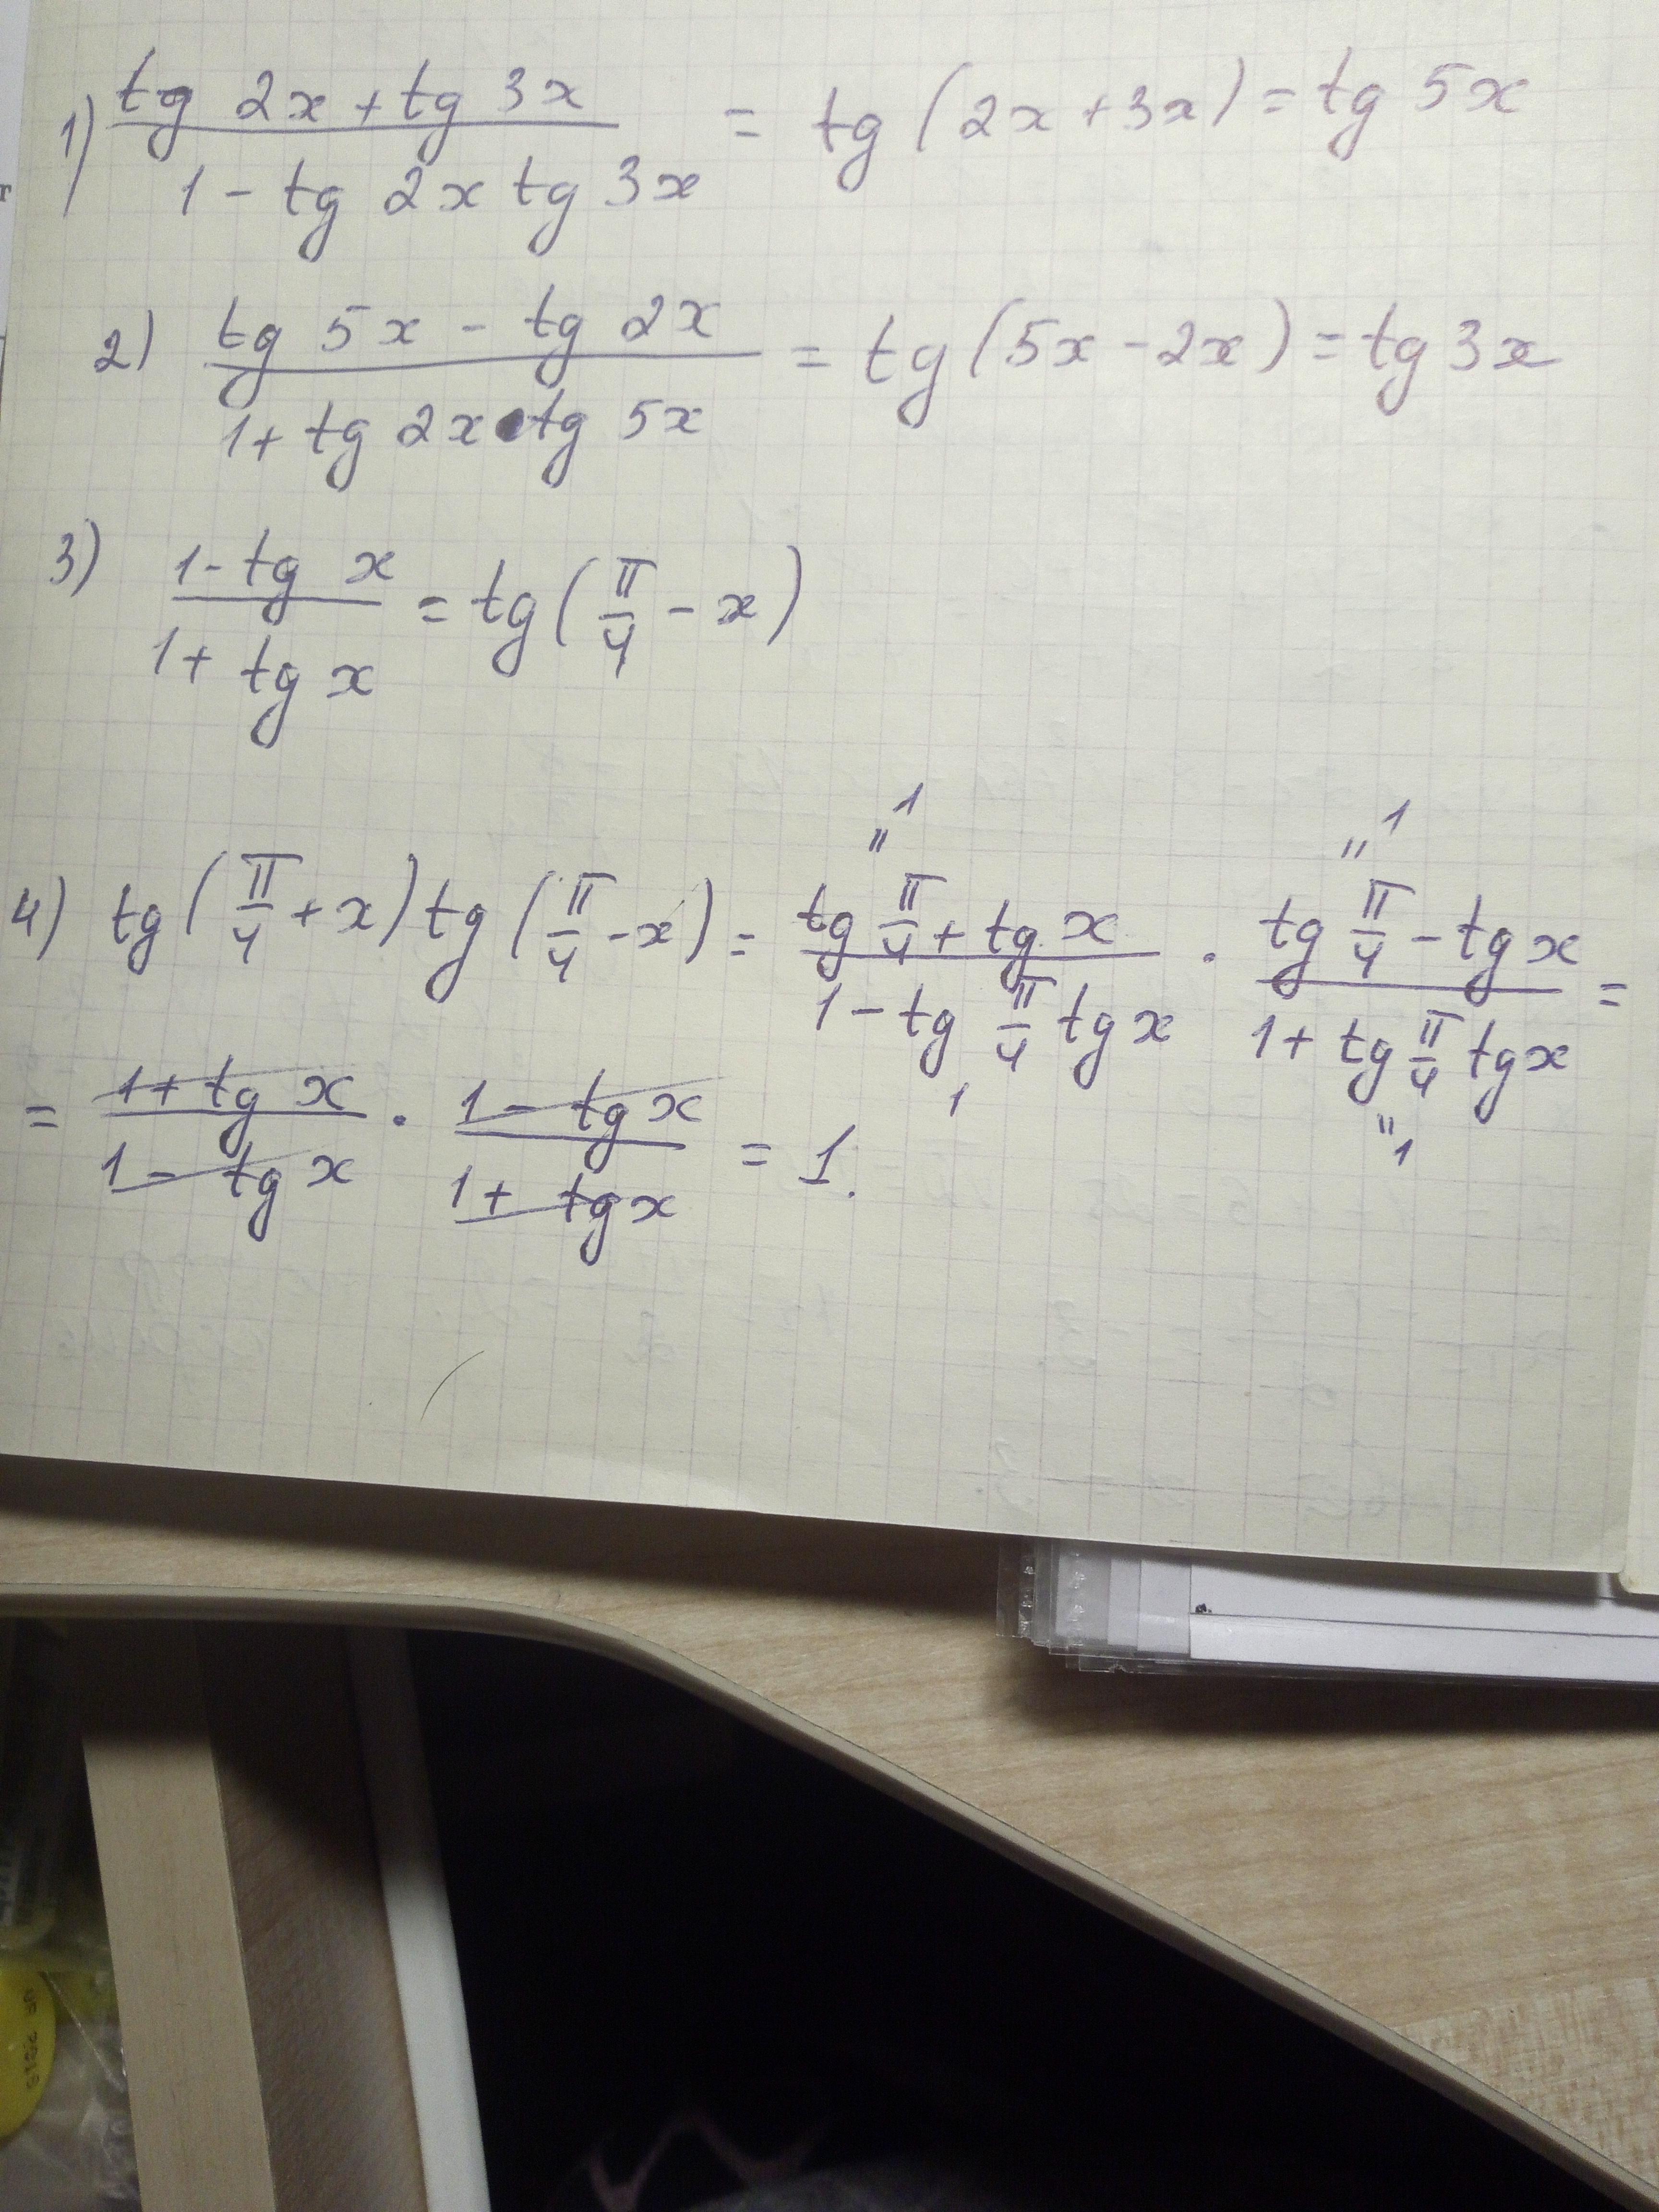 1) (tg 2x + tg 3x) / (1 - tg 2x tg 3x) = tg (2x + 3x) = tg 5x
2) (tg 5x - tg 2x) / (1 + tg 2x • tg 5x) = tg (5x - 2x) = tg 3x
3) (1 - tg x) / (1 + tg x) = tg (π/4 - x)
1 1
" "
4) tg (π/4 + x) tg (π/4 - x) = (tg π/4 + tg x) / (1 - tg π/4 tg x) · (tg π/4 - tg x) / (1 + tg π/4 tg x) =
1 "1
= (1 + tg x) / (1 - tg x) · (1 - tg x) / (1 + tg x) = 1.